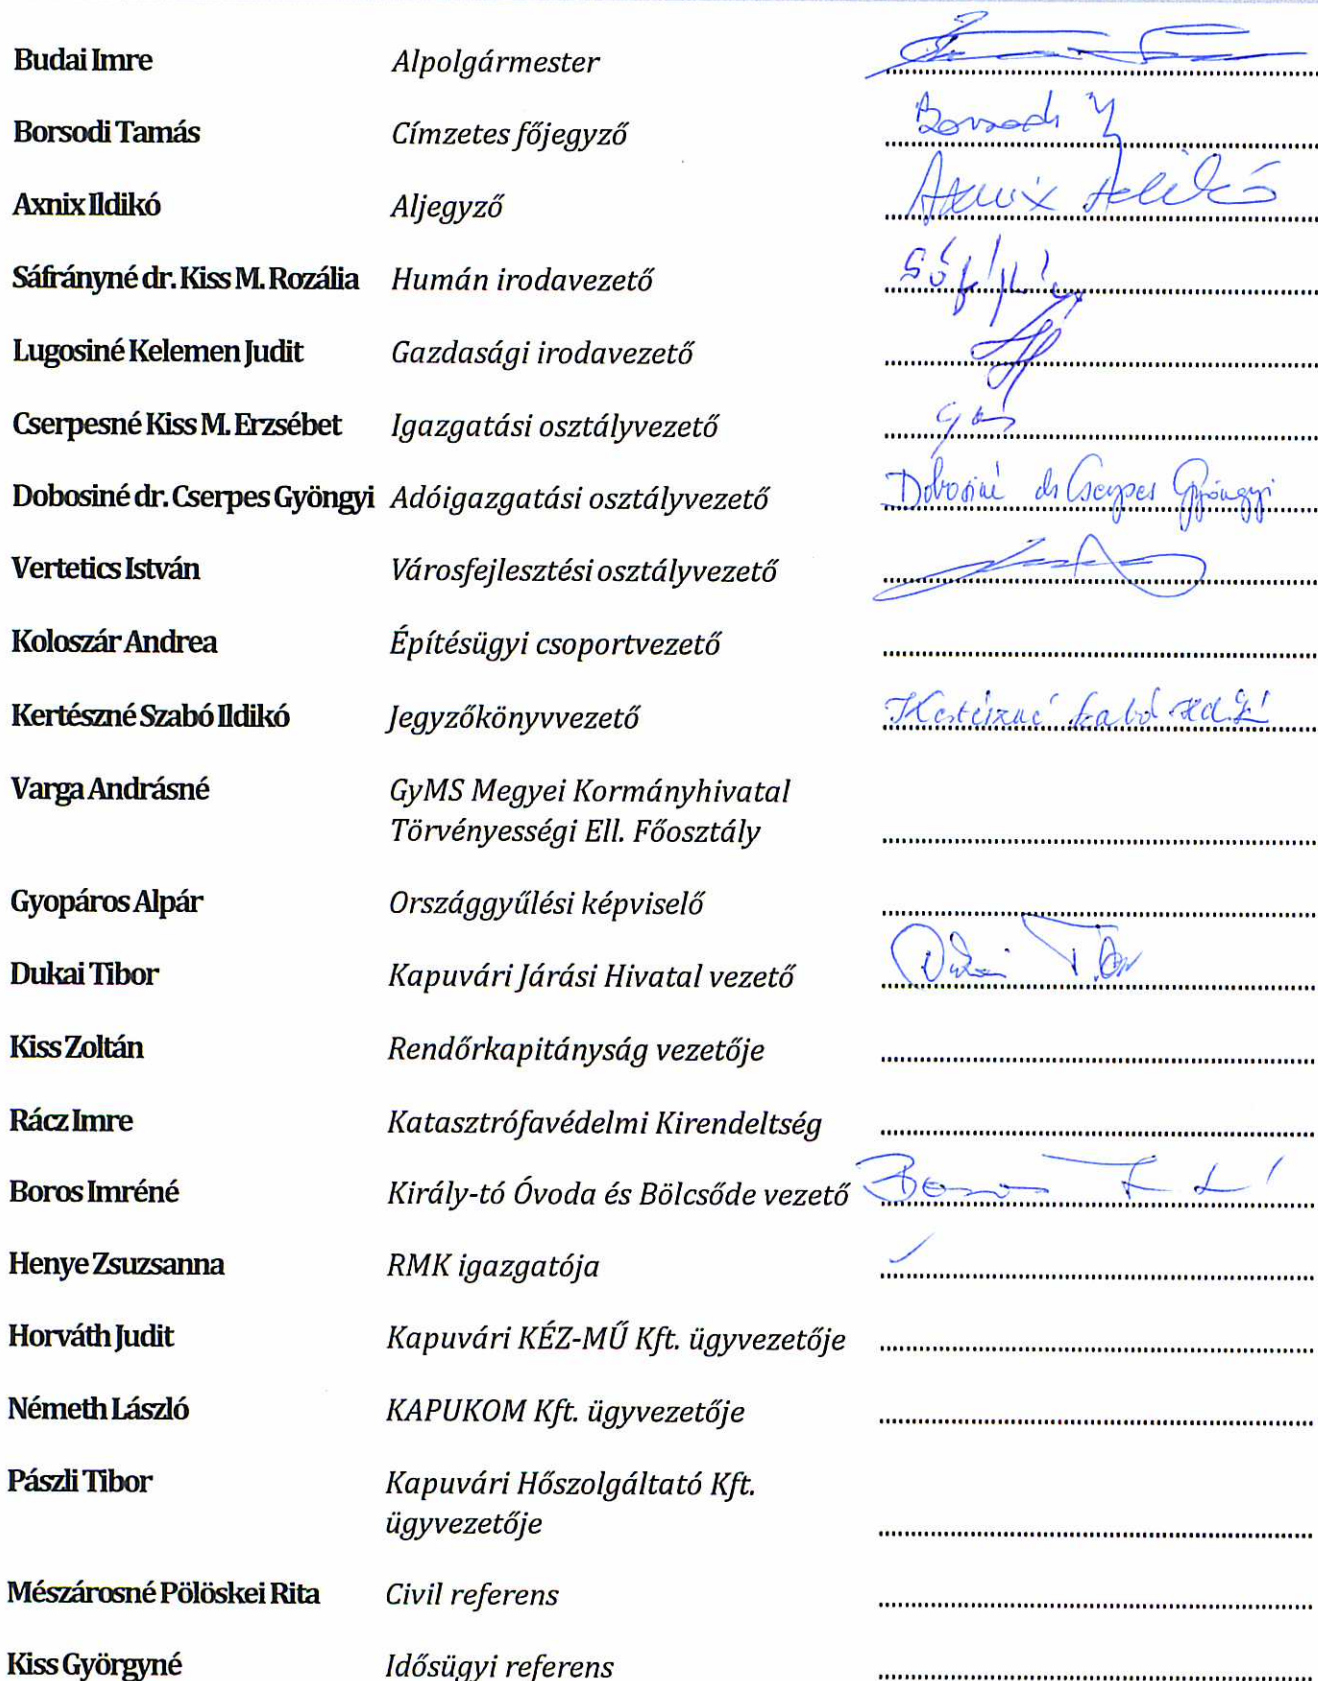 Budai Imre Alpolgármester
Borsodi Tamás Címzetes főjegyző Borsodi
Axnix Ildikó Aljegyző Axnix Ildikó
Sáfrányné dr. Kiss M. Rozália Humán irodavezető
Lugosiné Kelemen Judit Gazdasági irodavezető
Cserpesné Kiss M. Erzsébet Igazgatási osztályvezető
Dobosiné dr. Cserpes Gyöngyi Adóigazgatási osztályvezető Dobosiné dr Cserpes Gyöngyi
Vertetics István Városfejlesztési osztályvezető
Koloszár Andrea Építésügyi csoportvezető
Kertészné Szabó Ildikó Jegyzőkönyvvezető Kertészné Szabó Ildikó
Varga Andrásné GyMS Megyei Kormányhivatal
Törvényességi Ell. Főosztály
Gyopáros Alpár Országgyűlési képviselő
Dukai Tibor Kapuvári Járási Hivatal vezető Dukai Tibor
Kiss Zoltán Rendőrkapitányság vezetője
Rácz Imre Katasztrófavédelmi Kirendeltség
Boros Imréné Király-tó Óvoda és Bölcsőde vezető Boros
Henye Zsuzsanna RMK igazgatója
Horváth Judit Kapuvári KÉZ-MŰ Kft. ügyvezetője
Németh László KAPUKOM Kft. ügyvezetője
Pászli Tibor Kapuvári Hőszolgáltató Kft.
ügyvezetője
Mészárosné Pölöskei Rita Civil referens
Kiss Györgyné Idősügyi referens